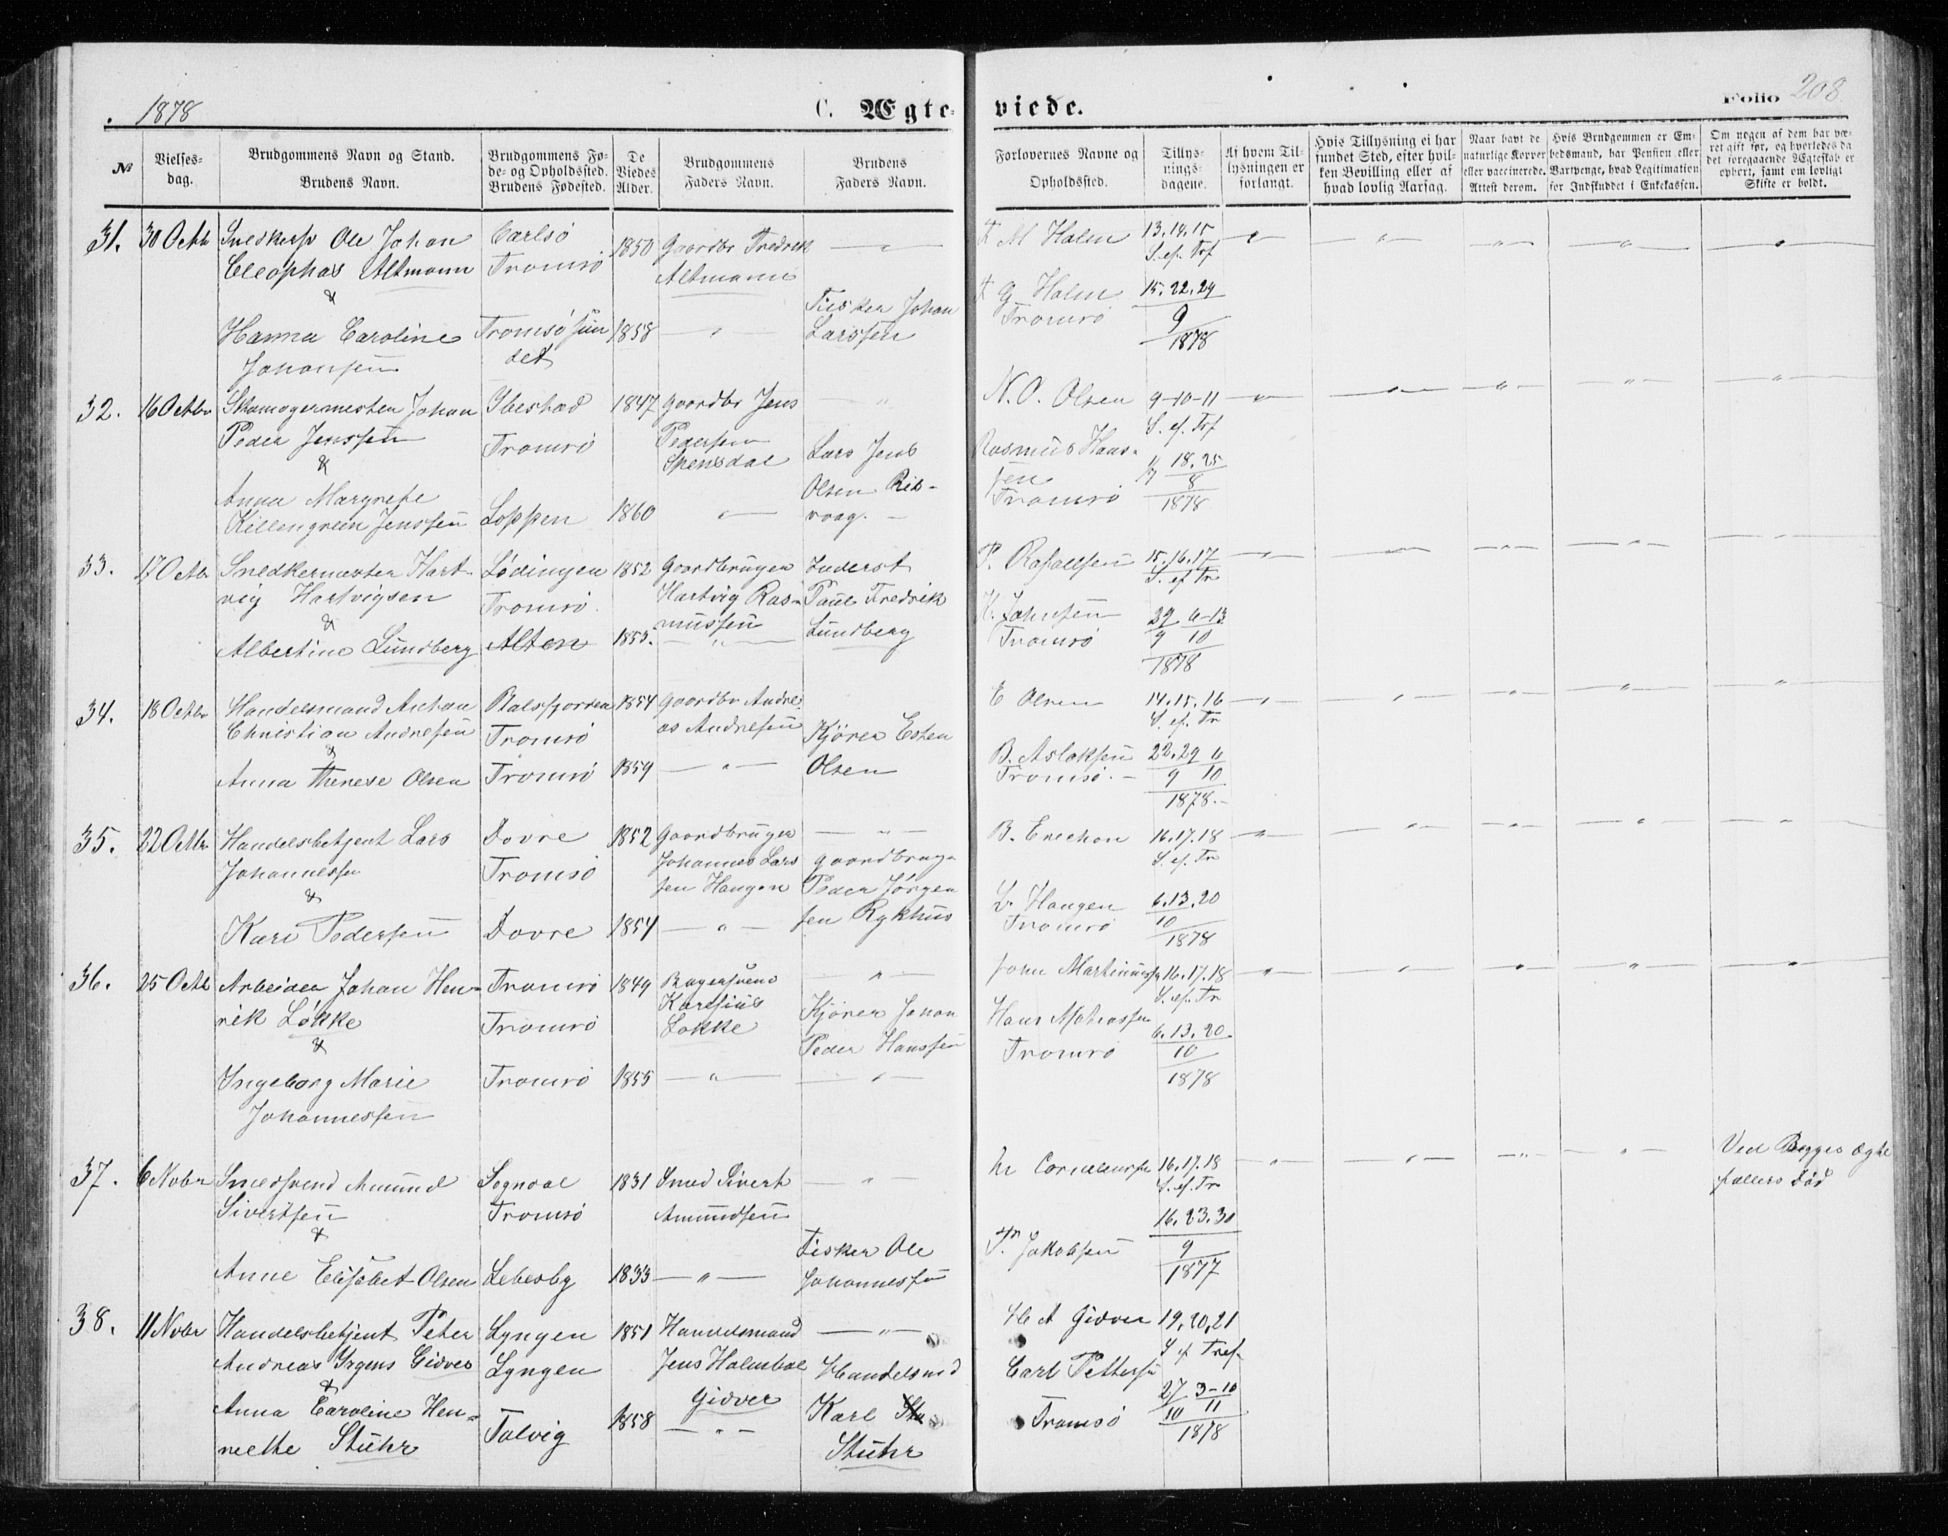 1878
C. Ægteviede.
Folio 208
№
Vielsesdag.
Brudgommens Navn og Stand.
Brudens Navn.
Brudgommens Føde- og Opholdssted.
Brudens Fødested.
De Viedes Alder.
Brudgommens Faders Navn.
Brudens Faders Navn.
Forlovernes Navne og Opholdssted.
Tillysningsdagene.
Af hvem Tillysningen er forlangt.
Hvis Tillysning ei har fundet Sted, efter hvilken Bevilling eller af hvad lovlig Aarsag.
Naar havt de naturlige Kopper eller vaccinerede. Attest derom.
Hvis Brudgommen er Embedsmand, har Pension eller Vartpenge, hvad Legitimation for Indskuddet i Enkekassen.
Om nogen af dem har været gift før, og hvorledes da det foregaaende Ægteskab er ophørt, samt om lovligt Skifte er holdt.
31. 30 Octb Snedkersv Ole Johan Carlsø 1850 Gaardbr Fredrik — " — F M Holm 13.14.15
Cleophas Altmann Tromsø Altmann S. ef. Trf
& Fisker Johan F G Holm 15.22.29
Hanna Caroline Tromsøsun 1858 " Larssen Tromsø 9
Johansen det 1878
32. 16 Octbr Skomagermester Johan Ibestad 1847 Gaardbr Jens " N. O. Olsen 9-10-11
Peder Jenssen Tromsø Pedersen Lars Jens S. ef. Trf
& Spensdal Olsen Ris- Rasmus Hans- 18.25
Anna Margrete sen 8
Killengreen Jenssen Loppen 1860 " vaag. — Tromsø 1878
33. 17 Octbr Snedkermester Hart Lødingen 1852 Gaardbrugen Inderst P. Rafaelsen 15.16.17
vig Hartvigsen Tromsø Hartvig Ras- Paul Fredrik S. ef Tr
& mussen Lundberg H. Johnsen 29 6-13
Albertine Lundberg Alten 1855. — " — Tromsø 9 10
1878
34. 18 Octbr Handelsmand Anton Balsfjorden 1854 Gaardbr Andre E Olsen 14.15.16
Christian Andresen Tromsø as Andresen Kjører Esten S. ef. Tr
& B. Aslaksen 22.29 6
Anna Therese Olsen Tromsø 1859 — " — Olsen Tromsø. — 9 10
1878.-
35. 22 Octbr Handelsbetjent Lars Dovre 1852 Gaardbruger — " — B. Erichson 16.17.18
Johannessen Tromsø Johannes Lars Gaardbrug- S. ef. Tr
& sen Haugen Peder Jørgen L. Haugen 6.13.20
Kari Pedersen Dovre 1854 — " — sen Rykhus Tromsø 10
1878
36. 25 Octb Arbeider Johan Hen- Tromsø 1849 Bagersvend — " — John Martinussen 16.17.18
rik Løkke Tromsø Karelius Kjører Johan S. ef. Tr
& Løkke Peder Hanssen Hans Mathiassen 6.13.20
Ingeborg Marie Tromsø 1855 — " — — " — Tromsø 10
Johannessen 1878
37. 6 Nobr Smedsvend Amund Sogndal 1831 Smed Sivert — " — Corneliussen 16.17.18 Ved Begges Ægte
Sivertsen Tromsø Amundsen S. ef. Tr fællers Død
& Fisker Ole 16.23.30
Anne Elisabet Olsen Lebesby 1833 — " — Johannessen Jakobsen 9
1877
38. 11 Nobr Handelsbetjent Peter Lyngen 1851 Handelsmand — " — H A Gidver 19,20,21
Andreas Yrgens Gidver Lyngen Jens Holmboe Handelsmd S ef Tref.
& Gidver Karl Carl Pettersen 27 3-10
Anna Caroline Hen- Talvig 1858 — " — Stuhr Tromsø 10 11
riette Stuhr 1878